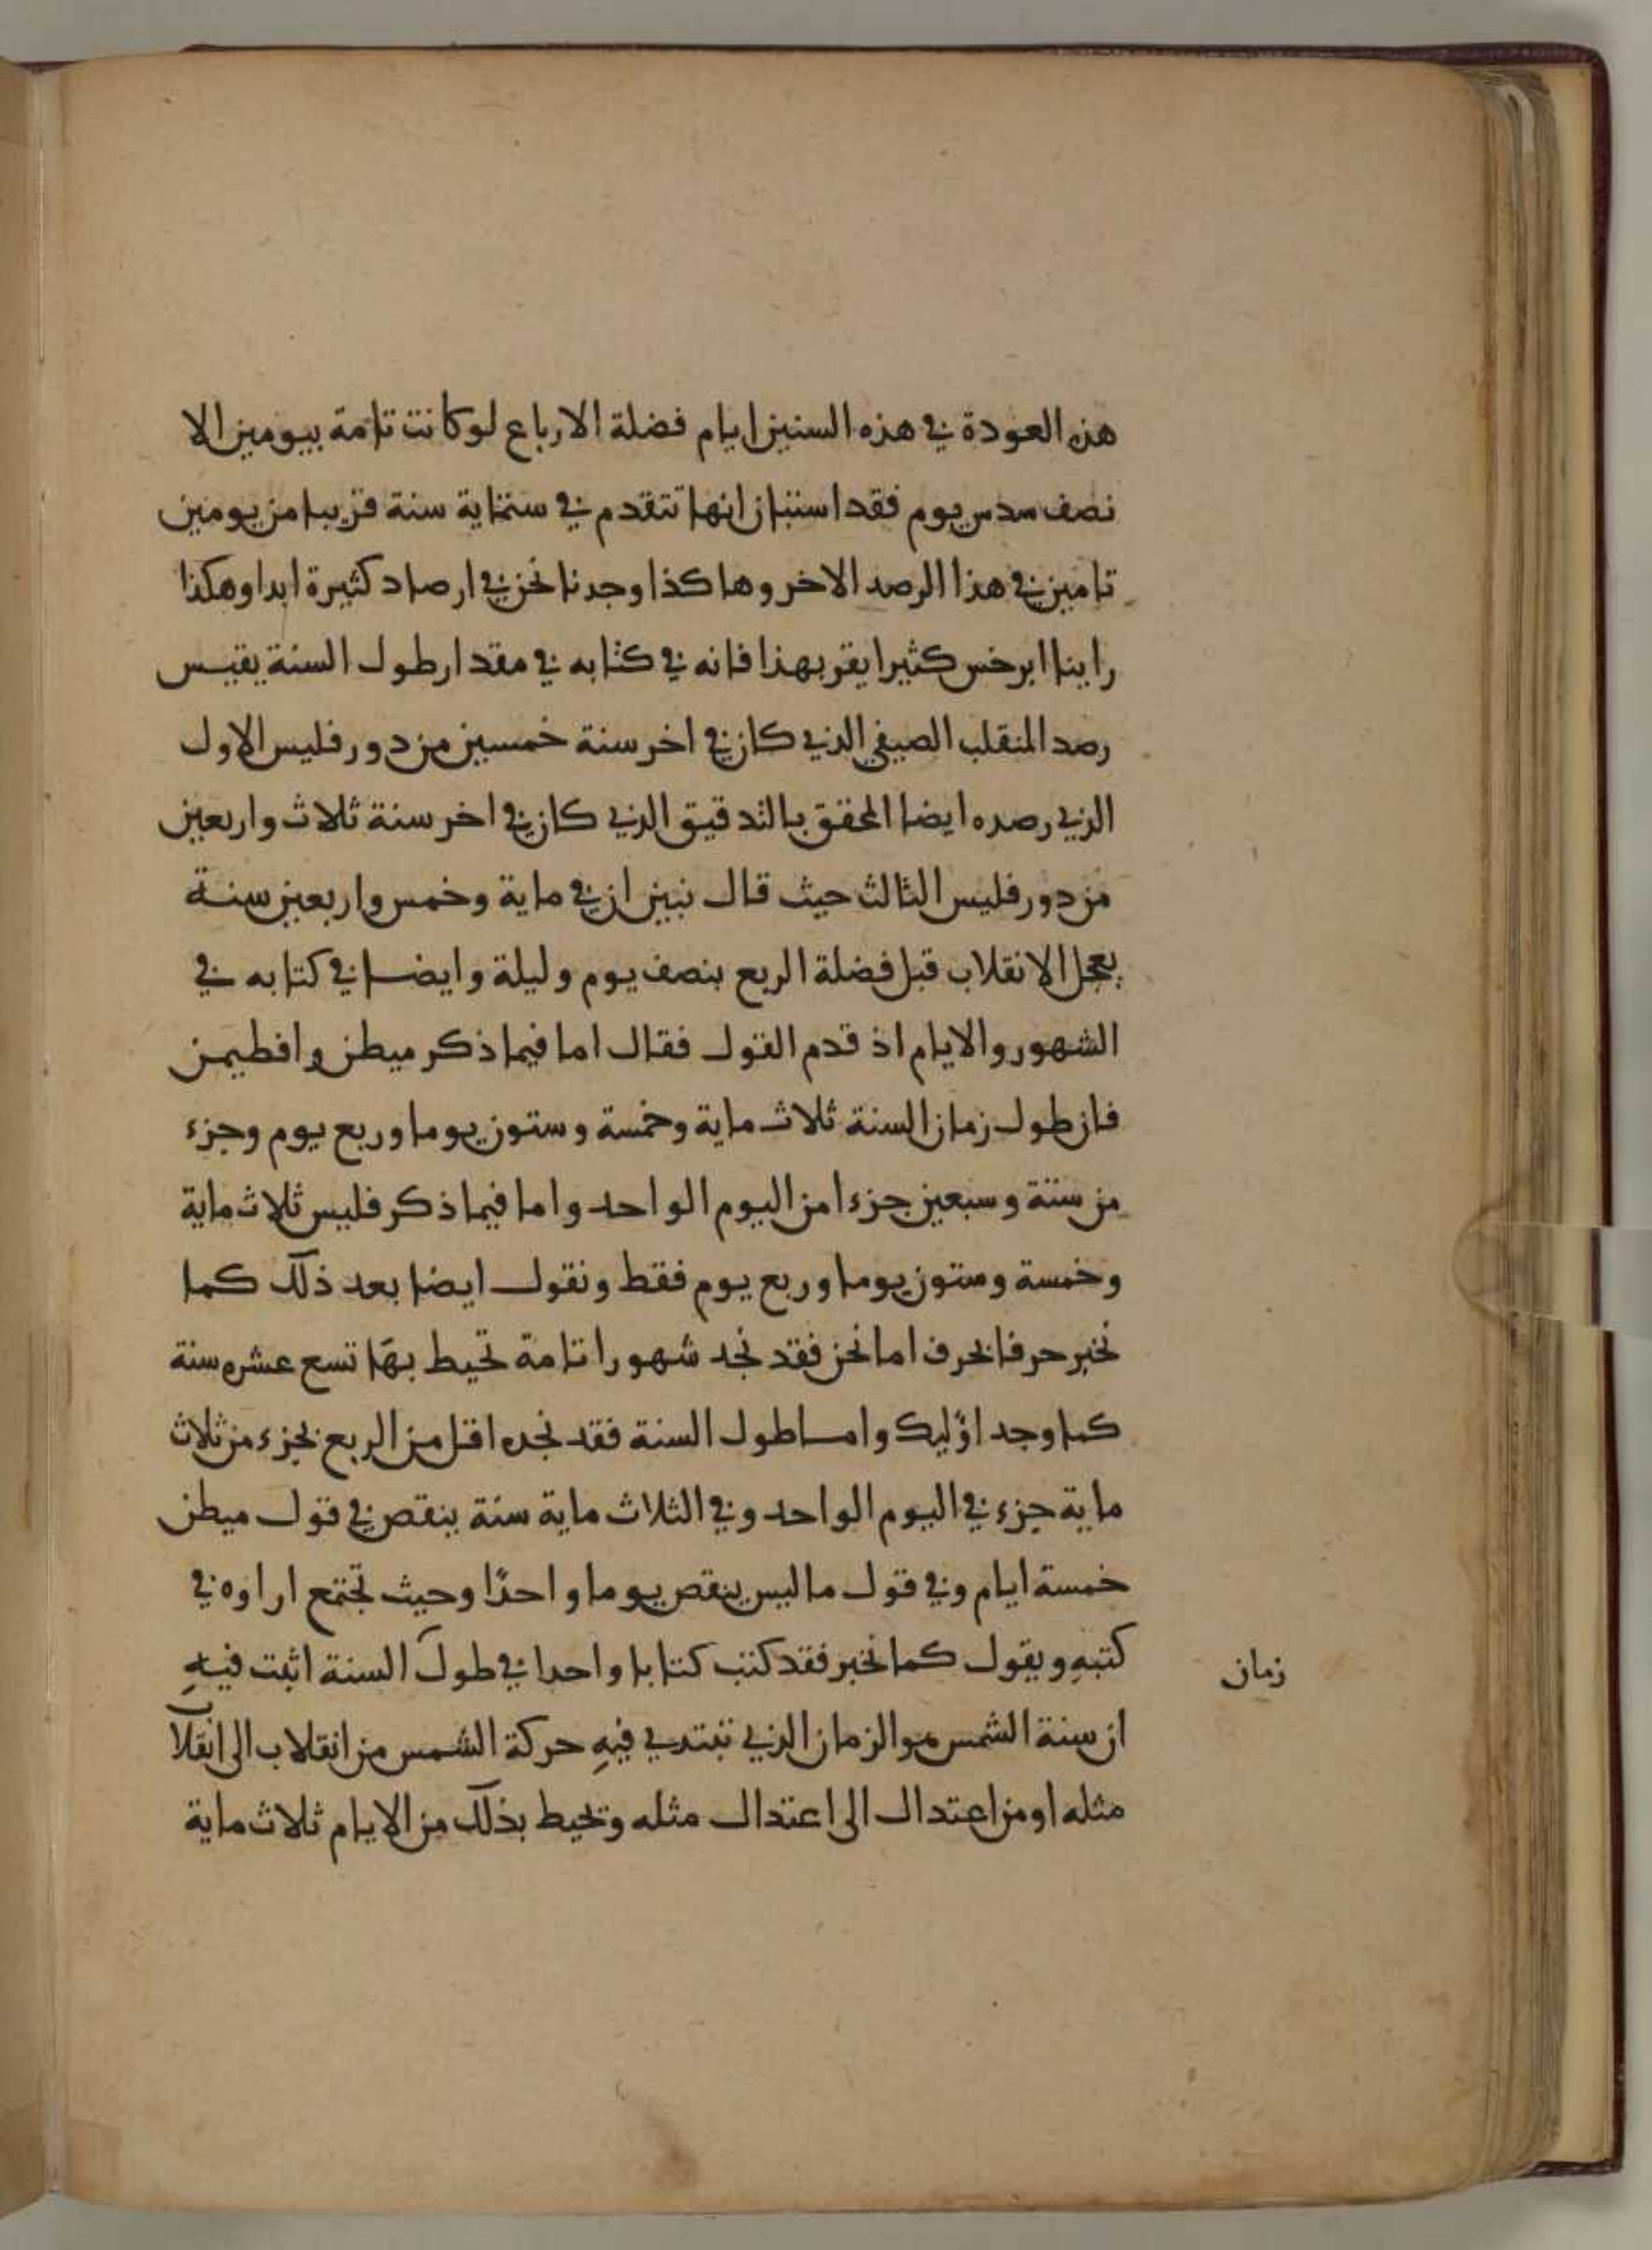 هذه العودة في هذه السنين ايام فضلة الارباع لو كانت تامة بيومين الا
نصف سدس يوم فقد استبان انها تتقدم في ستماية سنة قريبا من يومين
تامين في هذا الرصد الاخر وهاكذا وجدنا نحن في ارصاد كثيرة ابدا وهكذا
راينا ابرخس كثيرا يقر بهذا فانه في كتابه في مقدار طول السنة يقيس
رصد المنقلب الصيفي الذي كان في اخر سنة خمسين من دور فليس الاول
الذي رصده ايضا المحقق بالتدقيق الذي كان في اخر سنة ثلاث واربعين
من دور فليس الثالث حيث قال نبين ان في ماية وخمس واربعين سنة
يعجل الانقلاب قبل فضلة الربع بنصف يوم وليلة وايضا في كتابه في
الشهور والايام اذ قدم القول فقال اما فيما ذكر ميطن وافطيمن
فان طول زمان السنة ثلاث ماية وخمسة وستون يوما وربع يوم وجزء
من ستة وسبعين جزءا من اليوم الواحد واما فيما ذكر فليس ثلاث ماية
وخمسة وستون يوما وربع يوم فقط ونقول ايضا بعد ذلك كما
نخبر حرفا بحرف اما نحن فقد نجد شهورا تامة تحيط بها تسع عشره سنة
كما وجد اولٰيك واما طول السنة فقد نجده اقل من الربع بجزء من ثلاث
ماية جزء في اليوم الواحد وفي الثلاث ماية سنة ينقص في قول ميطن
خمسة ايام وفي قول ماليس ينقص يوما واحدًا وحيث تجتمع اراوه في
كتبهِ ويقول كما نخبر فقد كتب كتابا واحدا في طول السنة اثبت فيهِ
زمان
ان سنة الشمس هو الزمان الذي تبتدي فيهِ حركة الشمس من انقلاب الى انقلاب
مثله او من اعتدال الى اعتدال مثله وتحيط بذلك من الايام ثلاث ماية